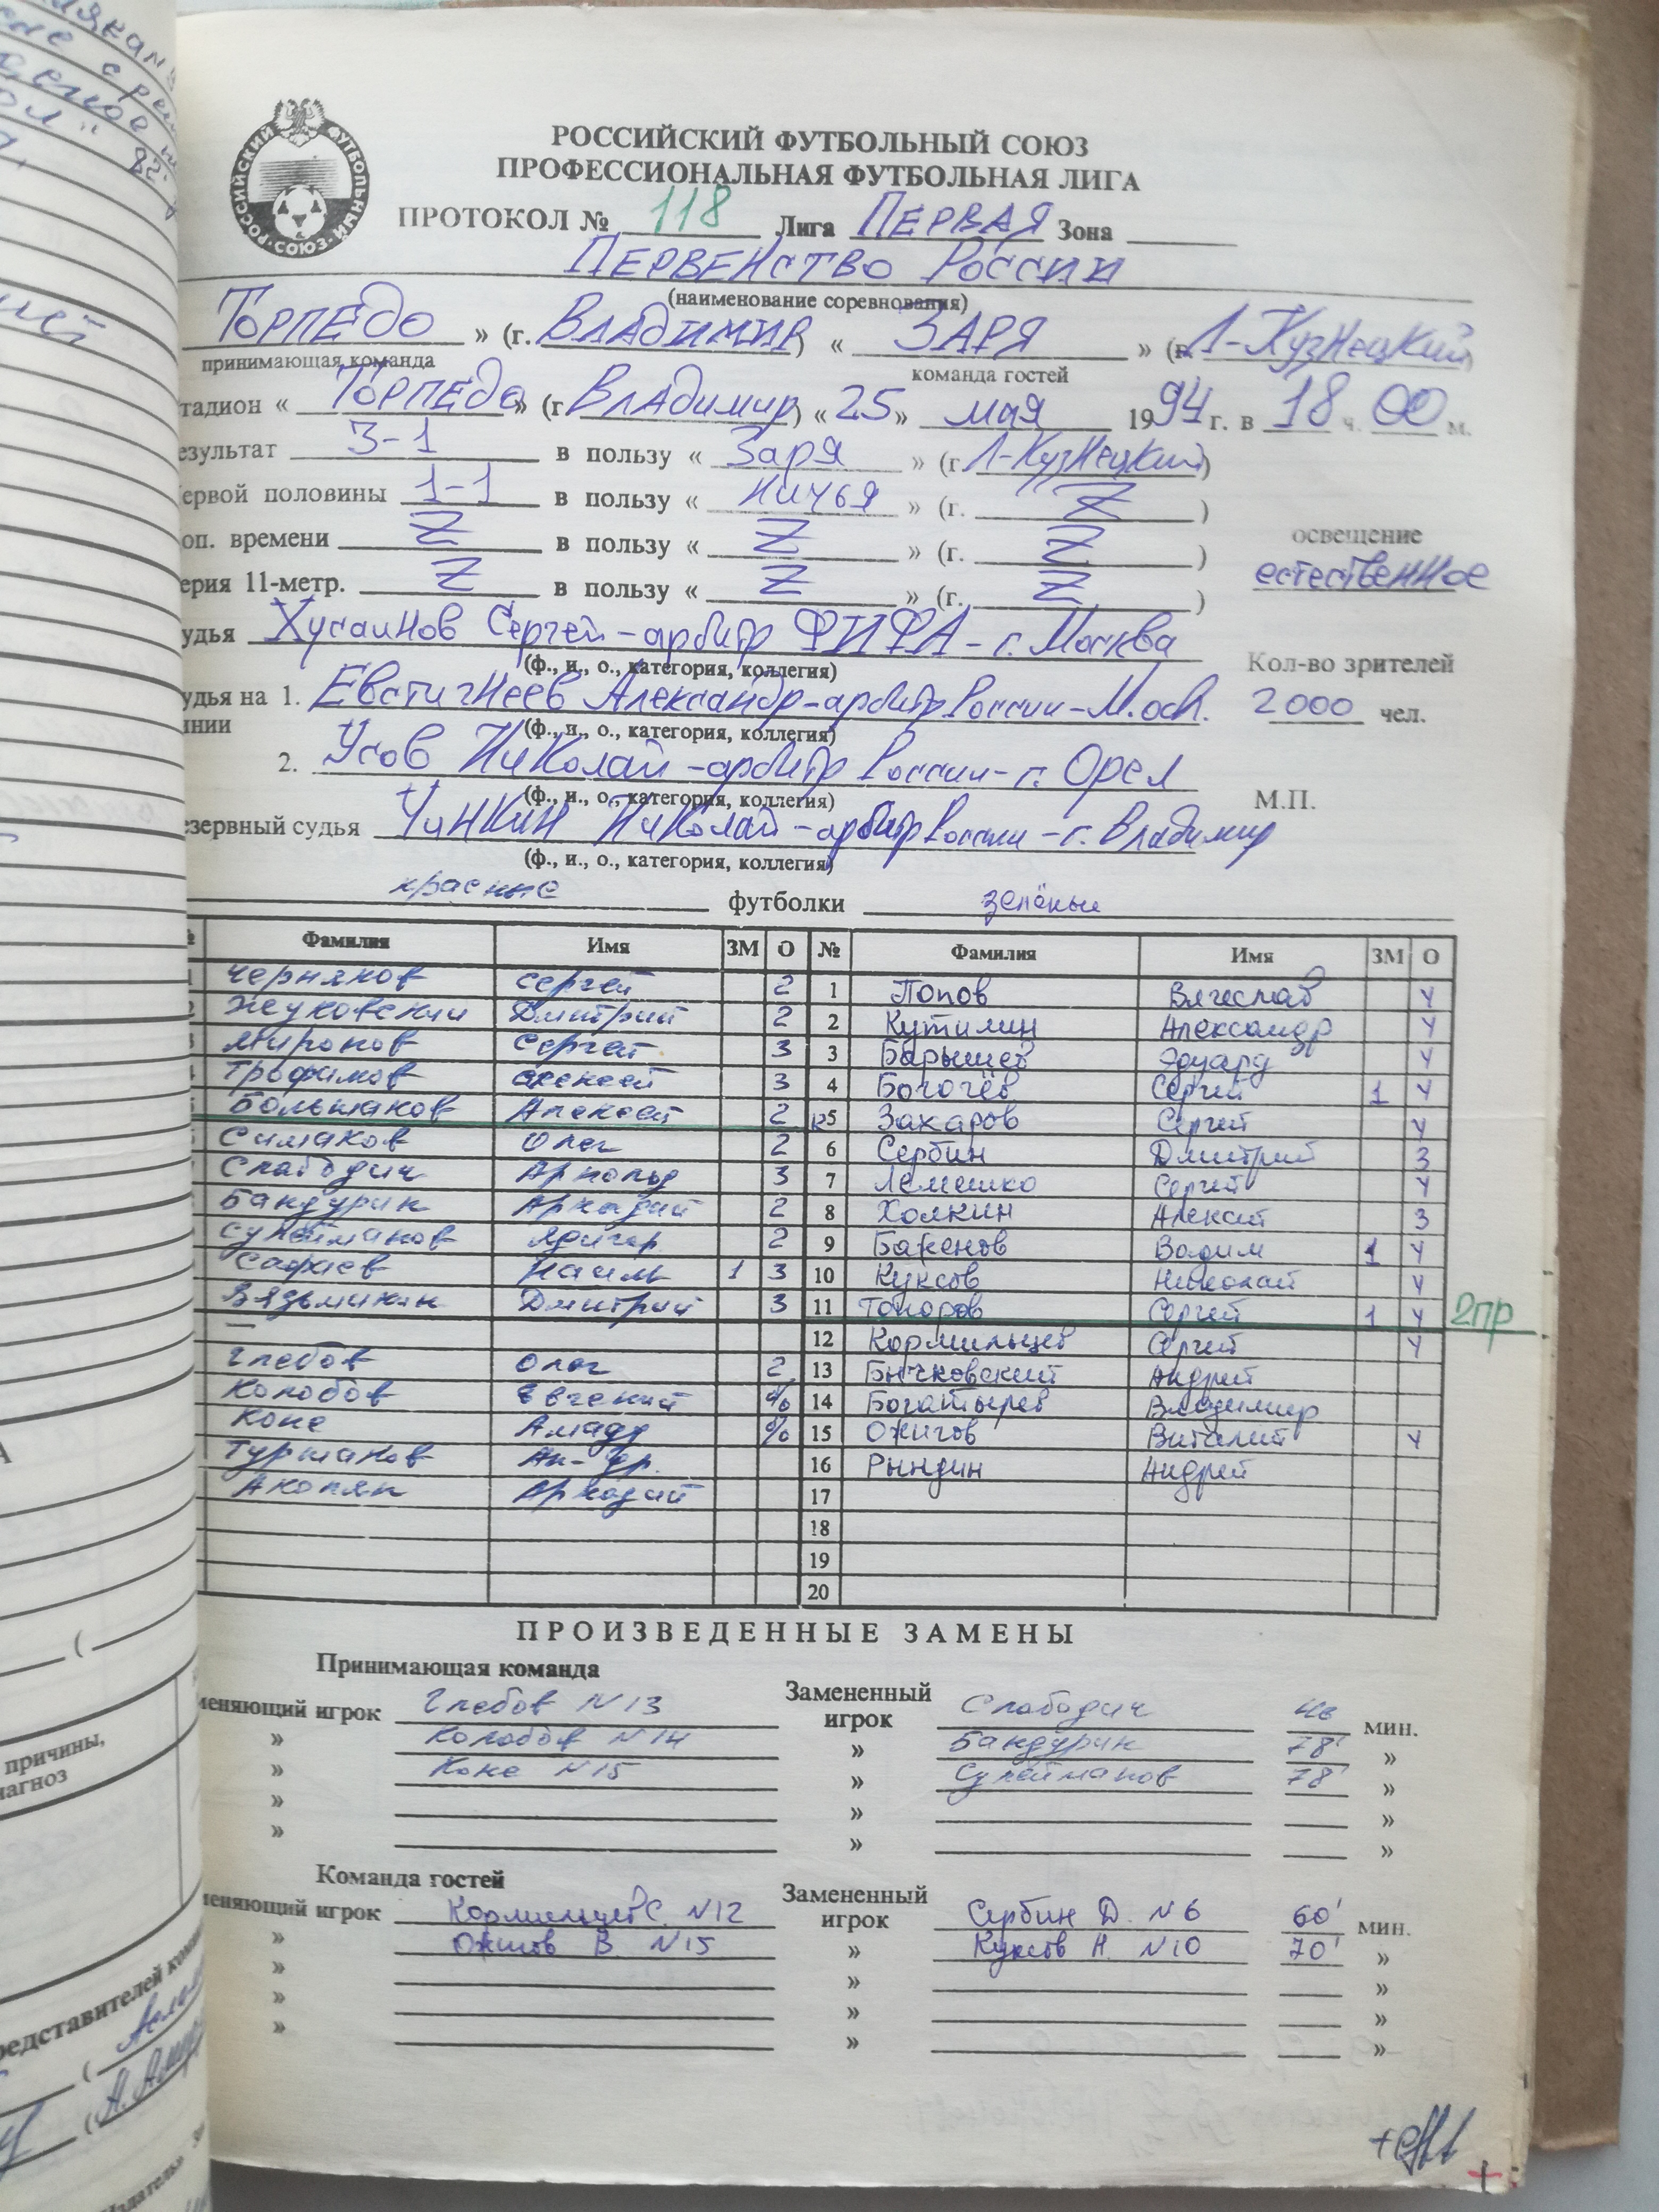 РОССИЙСКИЙ ФУТБОЛЬНЫЙ СОЮЗ
РОССИЙСКИЙ ФУТБОЛЬНЫЙ СОЮЗ
ПРОФЕССИОНАЛЬНАЯ ФУТБОЛЬНАЯ ЛИГА
ПРОТОКОЛ № 118 Лига ПЕРВАЯ Зона
ПЕРВЕНСТВО РОССИИ
(наименование соревнования)
ТОРПЕДО » (г. ВЛАДИМИР) « ЗАРЯ » (г. Л-Кузнецкий)
принимающая команда команда гостей
тадион « ТОРПЕДО » (г. Владимир) « 25 » мая 1994 г. в 18 ч. 00 м.
езультат 3-1 в пользу « Заря » (г. Л-Кузнецкий)
ервой половины 1-1 в пользу « ничья » (г. Z )
оп. времени Z в пользу « Z » (г. Z ) освещение
ерия 11-метр. Z в пользу « Z » (г. Z ) естественное
удья Хусаинов Сергей - арбитр ФИФА - г. Москва
(ф., и., о., категория, коллегия) Кол-во зрителей
удья на 1. Евстигнеев Александр - арбитр России - М.обл. 2000 чел.
инии (ф., и., о., категория, коллегия)
2. Усов Николай - арбитр России - г. Орел
(ф., и., о., категория, коллегия) М.П.
езервный судья Чинкин Николай - арбитр России - г. Владимир
(ф., и., о., категория, коллегия)
красные футболки зелёные
Фамилия Имя ЗМ О № Фамилия Имя ЗМ О
1 Черняков Сергей 2 1 Попов Вячеслав У
2 Жуковский Дмитрий 2 2 Кутимин Александр У
3 Миронов Сергей 3 3 Барышев Эдуард У
Трофимов Алексей 3 4 Богочёв Сергей 1 У
Большаков Алексей 2 к5 Захаров Сергей У
Симаков Олег 2 6 Сербин Дмитрий 3
Слабодич Арнольд 3 7 Лемешко Сергей У
Бандурин Аркадий 2 8 Холкин Алексей 3
Сулейманов Ядигар 2 9 Бакенов Вадим 1 У
Сафаев Наиль 1 3 10 Куксов Николай У
Вязьмикин Дмитрий 3 11 Топоров Сергей 1 У 2пр
— 12 Кормильцев Сергей У
Глебов Олег 2 13 Бычковский Андрей
Колобов Евгений % 14 Богатырев Владимир
Коне Амаду % 15 Ожигов Виталий У
Туршатов Ал-др. 16 Рындин Андрей
Акопян Аркадий 17
18
19
20
ПРОИЗВЕДЕННЫЕ ЗАМЕНЫ
Принимающая команда
меняющий игрок Глебов N13 Замененный игрок Слабодич 46 мин.
» Колобов N14 » Бандурин 78' »
» Коне N15 » Сулейманов 78' »
» » »
» » »
Команда гостей
меняющий игрок Кормильцев С. N12 Замененный игрок Сербин Д. N6 60' мин.
» Ожигов В. N15 » Куксов Н. N10 70' »
» » »
» » »
» » »
причины,
иагноз
редставителей коман